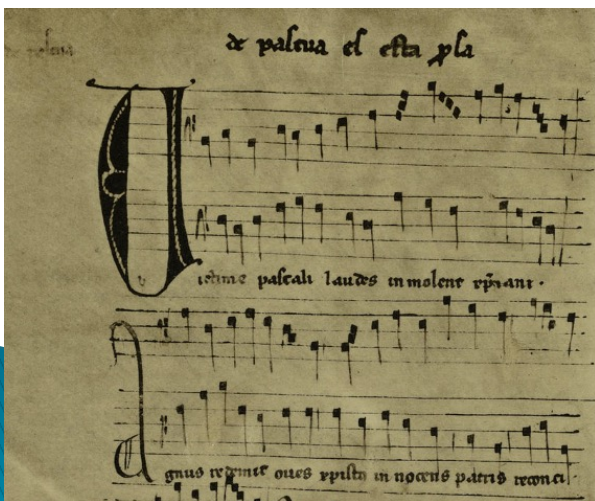 de pascua es esta psa
Victime pascali laudes inmolent xpiani.
Agnus redemit oues xpistu innocens patris reconci